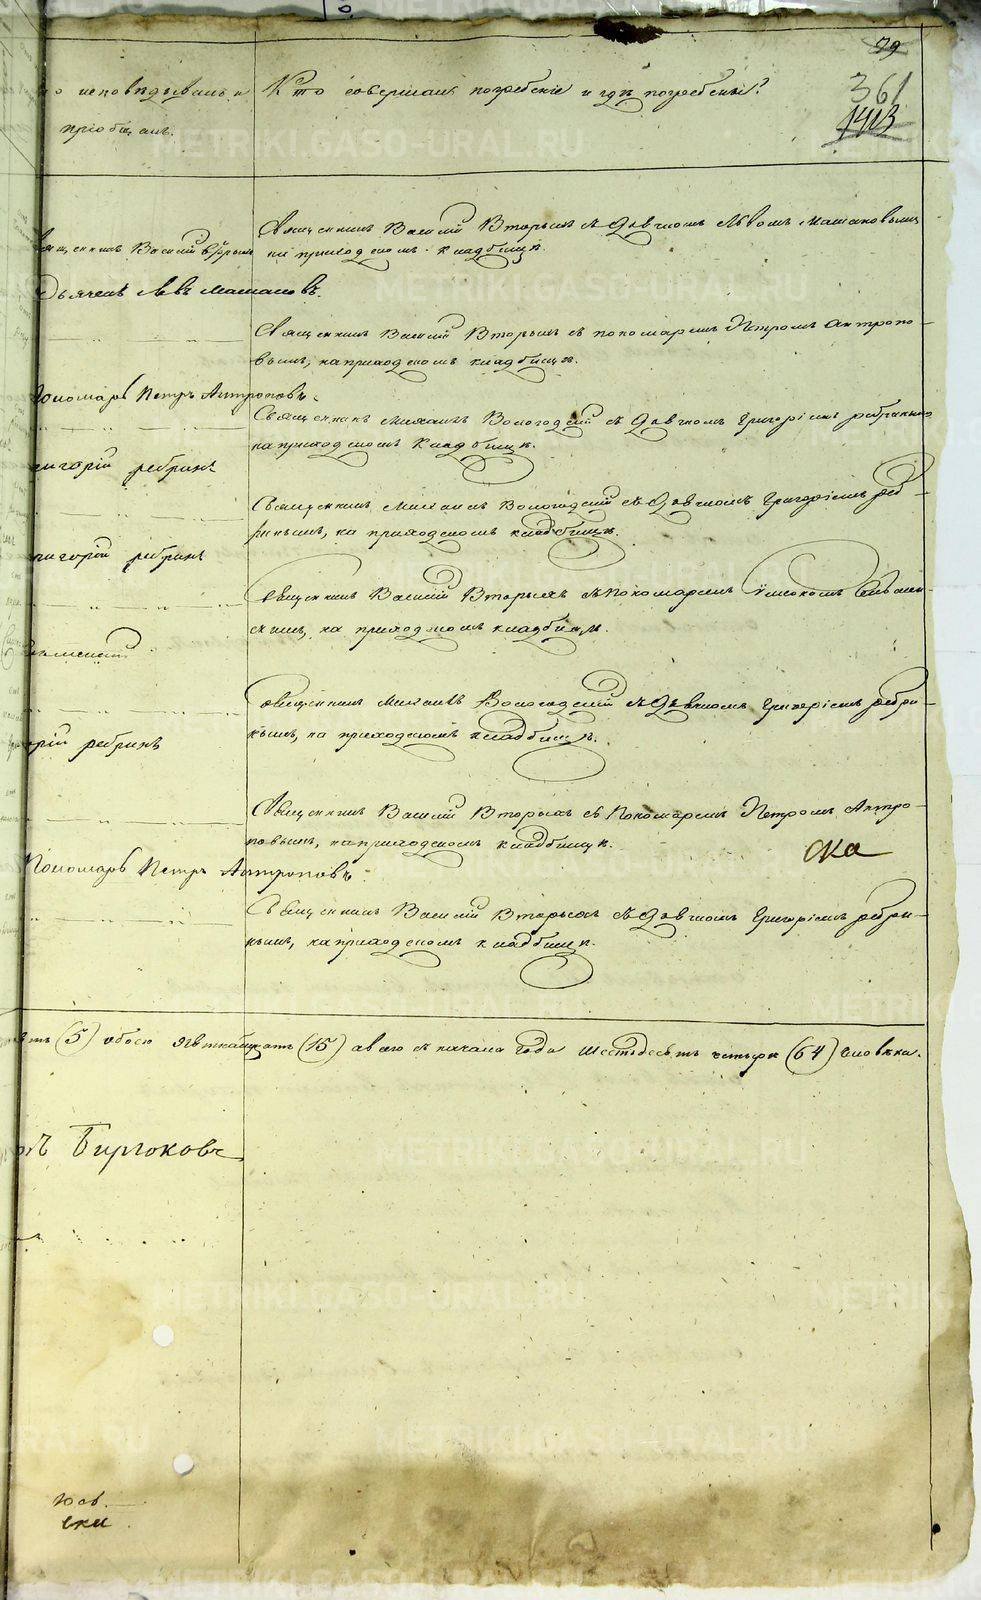 79
361
1413
исповѣдывалъ и
пріобщалъ.
Кто совершалъ погребеніе и гдѣ погребены?
Священникъ Василій Вторыхъ съ Дьячкомъ Львомъ
на приходскомъ кладбищѣ.
Священникъ Василій Вторыхъ
Дьячекъ Левъ
Священникъ Василій Вторыхъ съ пономаремъ Петромъ Антропо-
вымъ, на приходскомъ кладбищѣ.
Пономарь Петръ Антроповъ.
Священникъ Михаилъ Вологодскій съ Дьячкомъ Григоріемъ Ребринымъ
на приходскомъ кладбищѣ.
Григорій Ребринъ
Священникъ Михаилъ Вологодскій съ Дьячкомъ Григоріемъ Реб-
ринымъ, на приходскомъ кладбищѣ.
Григорій Ребринъ
Священникъ Василій Вторыхъ съ Пономаремъ
скимъ, на приходскомъ кладбищѣ.
Священникъ Михаилъ Вологодскій съ Дьячкомъ Григоріемъ Ребри-
нымъ, на приходскомъ кладбищѣ.
орій Ребринъ
Священникъ Василій Вторыхъ съ Пономаремъ Петромъ Антро-
повымъ, на приходскомъ кладбищѣ.
ска
Пономарь Петръ Антроповъ.
Священникъ Василій Вторыхъ съ Дьячкомъ Григоріемъ Ребри-
нымъ, на приходскомъ кладбищѣ.
ть (5) обоего пятнадцать (15) а всего съ начала года шестьдесятъ четыре (64) человѣка.
Бирюковъ
METRIKI.GASO-URAL.RU